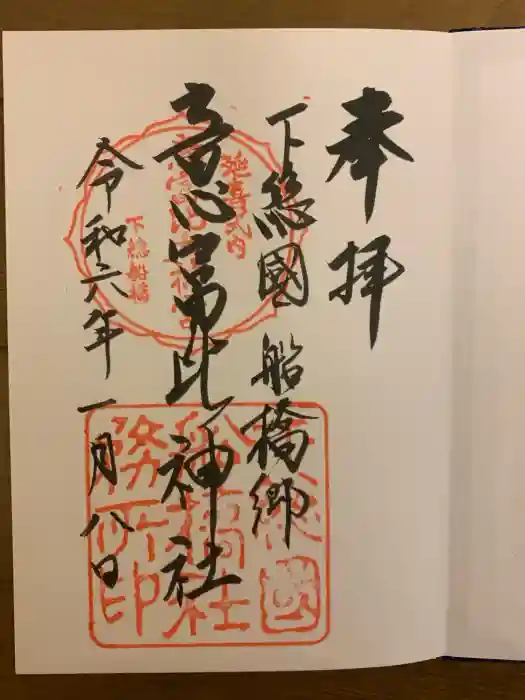 奉拝
下總國 船橋郷
意富比神社
令和六年一月八日
延喜式内
下総船橋